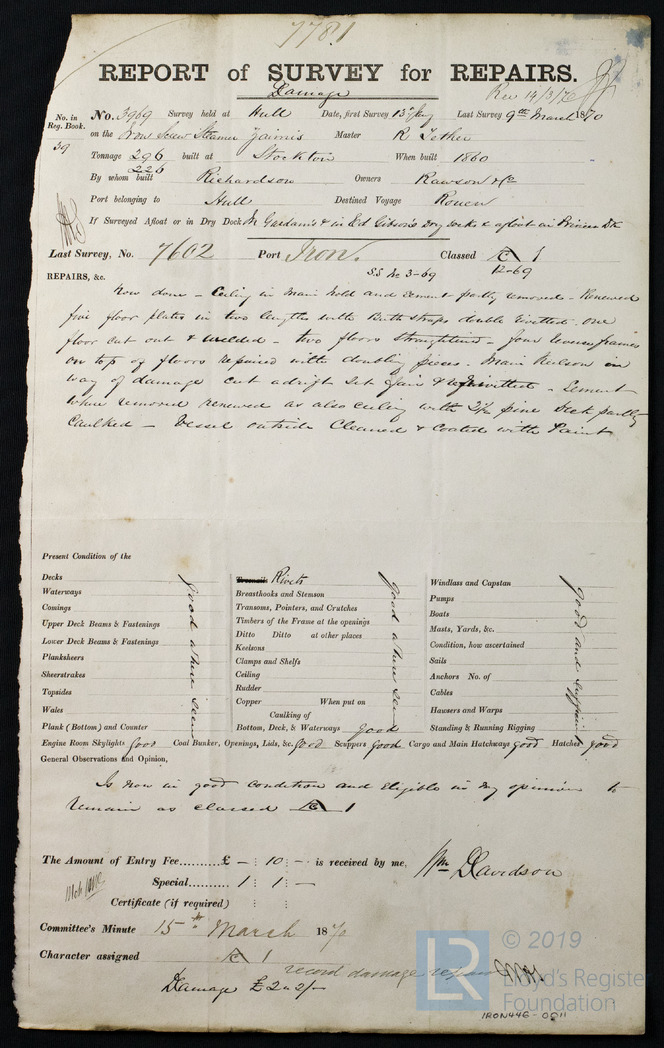 7781
REPORT of SURVEY for REPAIRS.
Damage
Rec 14/3/70
No. in Reg. Book. 39
No. 3969 Survey held at Hull Date, first Survey 13th Last Survey 9th March 1870
on the Iron Screw Steamer Master R Tether
Tonnage 296 built at Stockton When built 1860
226
By whom built Richardson Owners Rawson & Co
Port belonging to Hull Destined Voyage Rouen
If Surveyed Afloat or in Dry Dock In & in Ed Gibson's Dry Docks & afloat in Princes Dk
Last Survey, No. 7602 Port Iron. Classed A 1
SS No 3-69 12-69
REPAIRS, &c.
Now done - Ceiling in Main hold and cement partly removed - Renewed
five floor plates in two lengths with Butt straps double rivetted. one
floor cut out & welded - two floors straightened - four reverse frames
on top of floors repaired with doubling pieces. Main Keelson in
way of damage cut adrift set fair & rerivetted - Cement
where removed renewed as also ceiling with 2½ pine Deck partly
Caulked - Vessel outside Cleaned & Coated with Paint
Present Condition of the
Decks
Waterways
Comings
Upper Deck Beams & Fastenings
Lower Deck Beams & Fastenings
Planksheers
Sheerstrakes
Topsides
Wales
Plank (Bottom) and Counter
good where seen
Rivets
Breasthooks and Stemson
Transoms, Pointers, and Crutches
Timbers of the Frame at the openings
Ditto Ditto at other places
Keelsons
Clamps and Shelfs
Ceiling
Rudder
Copper When put on
Caulking of
Bottom, Deck, & Waterways good
good where seen
Windlass and Capstan
Pumps
Boats
Masts, Yards, &c.
Condition, how ascertained
Sails
Anchors No. of
Cables
Hawsers and Warps
Standing & Running Rigging
good and sufficient
Engine Room Skylights good Coal Bunker, Openings, Lids, &c. good Scuppers good Cargo and Main Hatchways good Hatches good
General Observations and Opinion,
Is now in good condition and Eligible in my opinion to
remain as classed A 1
The Amount of Entry Fee..........£ - : 10 : - is received by me,
Wm Davidson
Special.......... 1 : 1 : -
Certificate (if required)
Committee's Minute 15th March 1870
Character assigned A 1
record damage repairs
Damage £2.2/-
LR © 2019
Lloyd's Register
Foundation
IRON446-0011